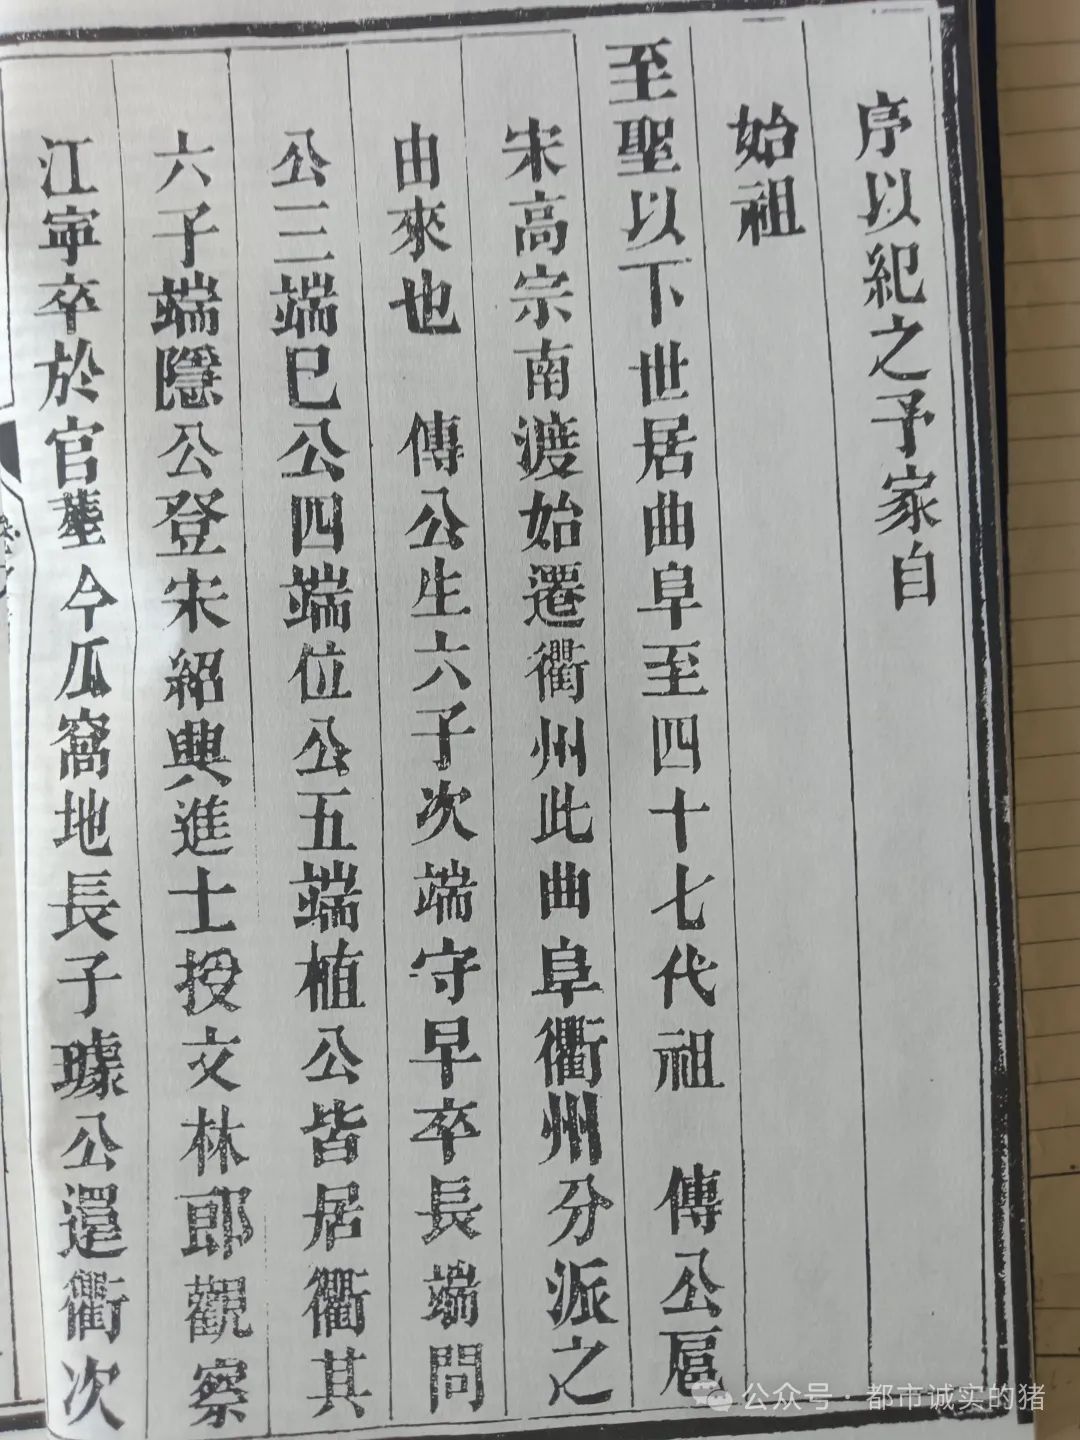 序以紀之予家自
始祖
至聖以下世居曲阜至四十七代祖　傳公扈
宋高宗南渡始遷衢州此曲阜衢州分派之
由來也　傳公生六子次端守早卒長端問
公三端巳公四端位公五端植公皆居衢其
六子端隱公登宋紹興進士授文林郎觀察
江寧卒於官葬今瓜窩地長子璩公還衢次
公众号·都市诚实的猪